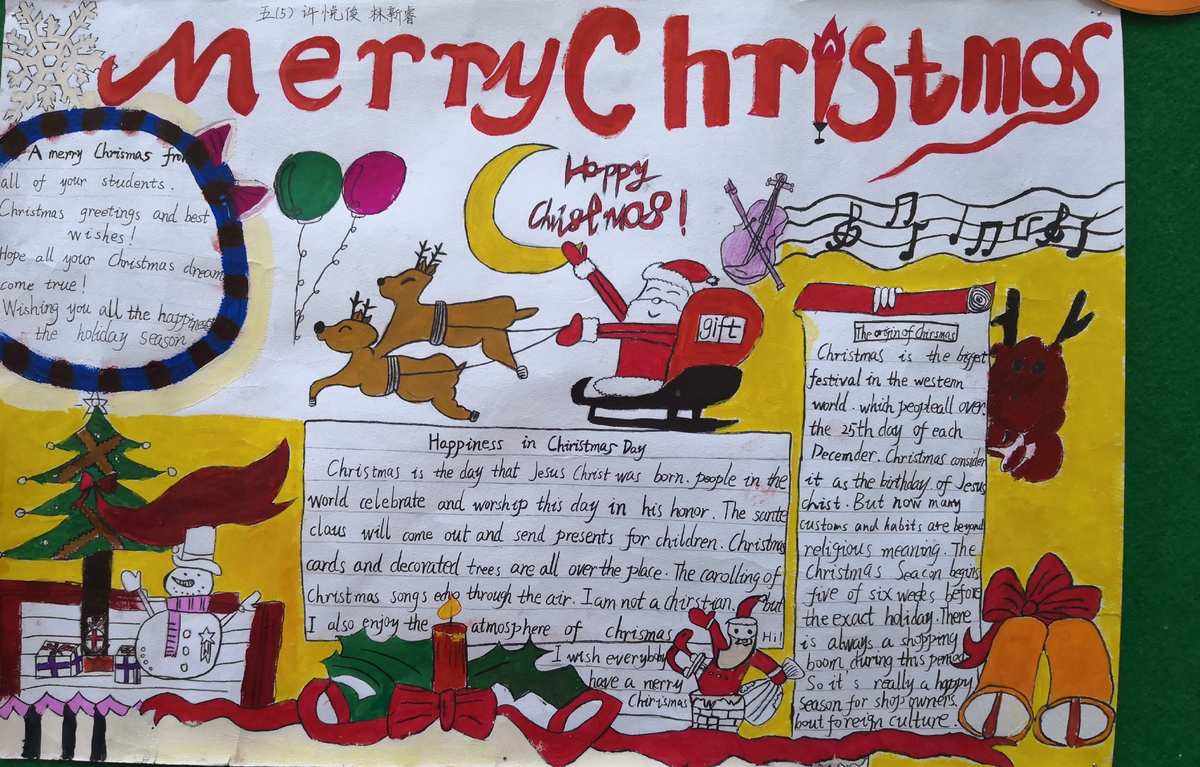 五(5) 许悦俊 林新睿
Merry Christmas
A merry Chrismas from
all of your students.
Christmas greetings and best
wishes!
Hope all your Christmas dream
come true!
Wishing you all the happiness
the holiday season
Happy
Christmas!
gift
Happiness in Chiristmas Day
Christmas is the day that Jesus Christ was born. people in the
world celebrate and worship this day in his honor. The sante
claus will come out and send presents for children. Christmas
cards and decorated trees are all over the place. The carolling of
Christmas songs echo through the air. I am not a chirstian. but
I also enjoy the atmosphere of chrismas
I wish everybody
have a merry
Chrismas
Hi!
The origin of Chrismas
Christmas is the biggest
festival in the western
world. which peopleall over
the 25th day of each
Decemder. Christmas consider
it as the birthday of Jesus
christ. But now many
customs and habits are beyond
religious meaning. The
Christmas Seacon begins
five of six weeks before
the exact holiday. There
is always a shopping
boom during this period
So it's really a happy
season for shop owners.
bout foreign culture.